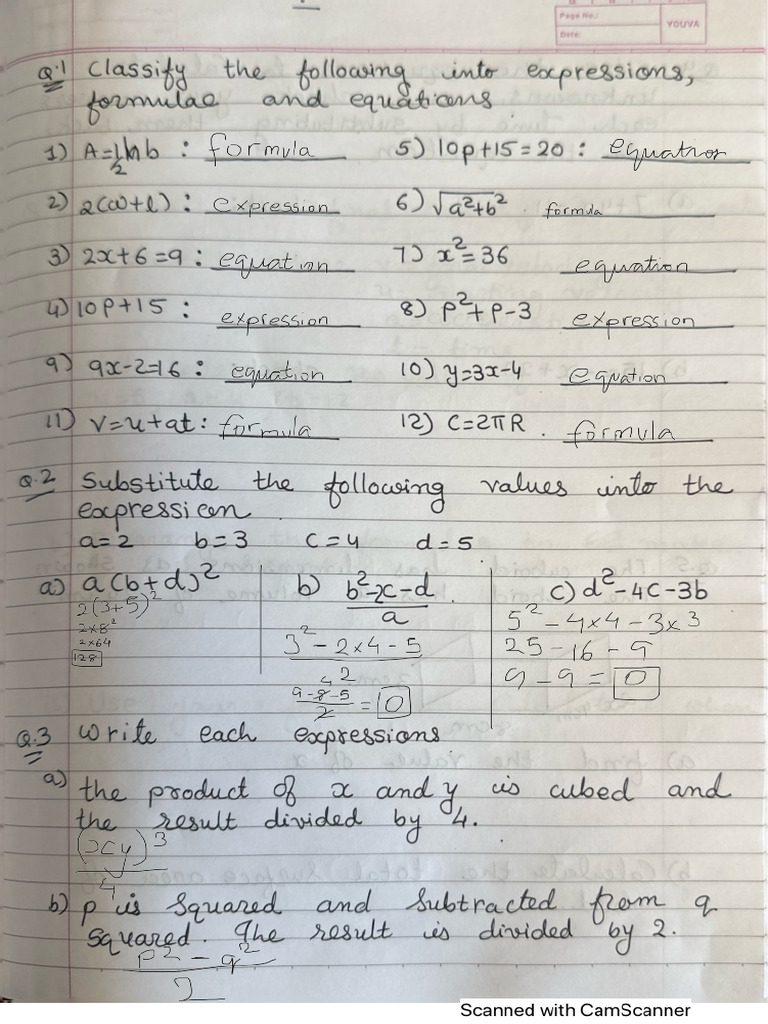 Page No.:
Date:
YOUVA
Q.1 Classify the following into expressions,
formulae and equations
1) A=1/2hb : formula 5) 10p+15=20 : equation
2) 2(w+l) : expression 6) √a²+b² formula
3) 2x+6=9 : equation 7) x²=36 equation
4) 10p+15 : expression 8) p²+p-3 expression
9) 9x-2=16 : equation 10) y=3x-4 equation
11) v=u+at : formula 12) C=2πR . formula
Q.2 Substitute the following values into the
expression
a=2 b=3 c=4 d=5
a) a(b+d)² b) b²-2c-d/a c) d²-4c-3b
2(3+5)²
2×8²
2×64
128
3²-2×4-5
2
9-8-5/2 = 0
5²-4×4-3×3
25-16-9
9-9=0
Q.3 Write each expressions
a) the product of x and y is cubed and
the result divided by 4.
(xy)³
4
b) p is squared and subtracted from q
squared. The result is divided by 2.
p²-q²
2
Scanned with CamScanner